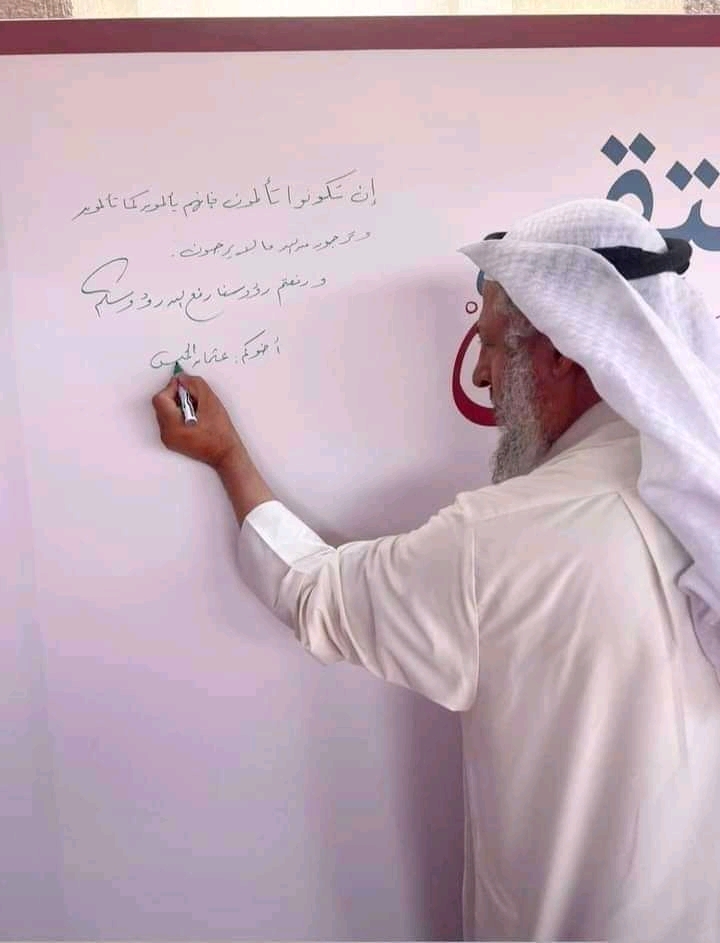 إن تكونوا تألمون فإنهم يألمون كما تألمون
وترجون من الله ما لا يرجون.
ورفعتم رؤوسنا رفع الله رؤوسكم
أخوكم: عثمان الخميس